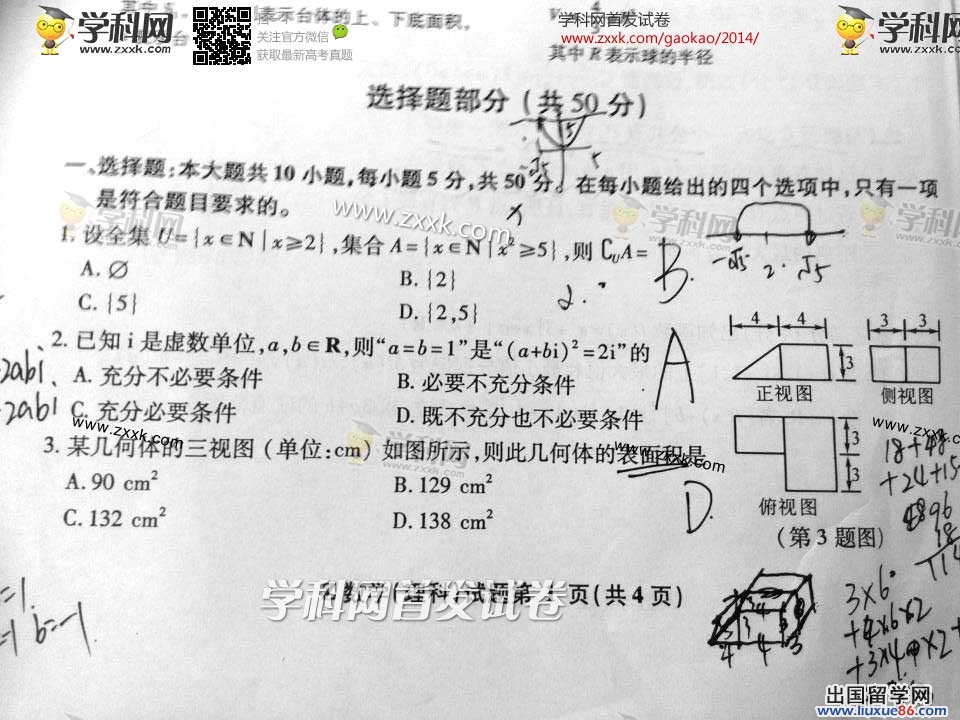 学科网
www.zxxk.com
学科网高考
关注官方微信
获取最新高考真题
表示台体的上、下底面积,
学科网首发试卷
www.zxxk.com/gaokao/2014/
其中 R 表示球的半径
学科网
www.zxxk.com
选择题部分(共 50 分)
5
-√5 5
一、选择题:本大题共 10 小题,每小题 5 分,共 50 分。在每小题给出的四个选项中,只有一项
是符合题目要求的。
www.zxxk.com
学科网
学科网
1. 设全集 U={x∈N|x≥2},集合 A={x∈N|x²≥5},则 ∁UA= B.
-√5 2 √5
A. ∅
B. {2}
C. {5}
D. {2,5}
2.
2. 已知 i 是虚数单位,a,b∈R,则“a=b=1”是“(a+bi)²=2i”的 A
A. 充分不必要条件
B. 必要不充分条件
C. 充分必要条件
D. 既不充分也不必要条件
2abi
2abi
4 4 3
正视图
3 3
侧视图
3 3
俯视图
(第 3 题图)
学科网
www.zxxk.com
学科网
www.zxxk.com
3. 某几何体的三视图(单位:cm)如图所示,则此几何体的表面积是
A. 90 cm²
B. 129 cm²
C. 132 cm²
D. 138 cm²
D.
18+48
+24+15
数学(理科)试题第 1 页(共 4 页)
学科网首发试卷
=1.
=1 b=-1
3 4
3 3
4 4 3
3×6
+4×6×2
出国留学网
www.liuxue86.com